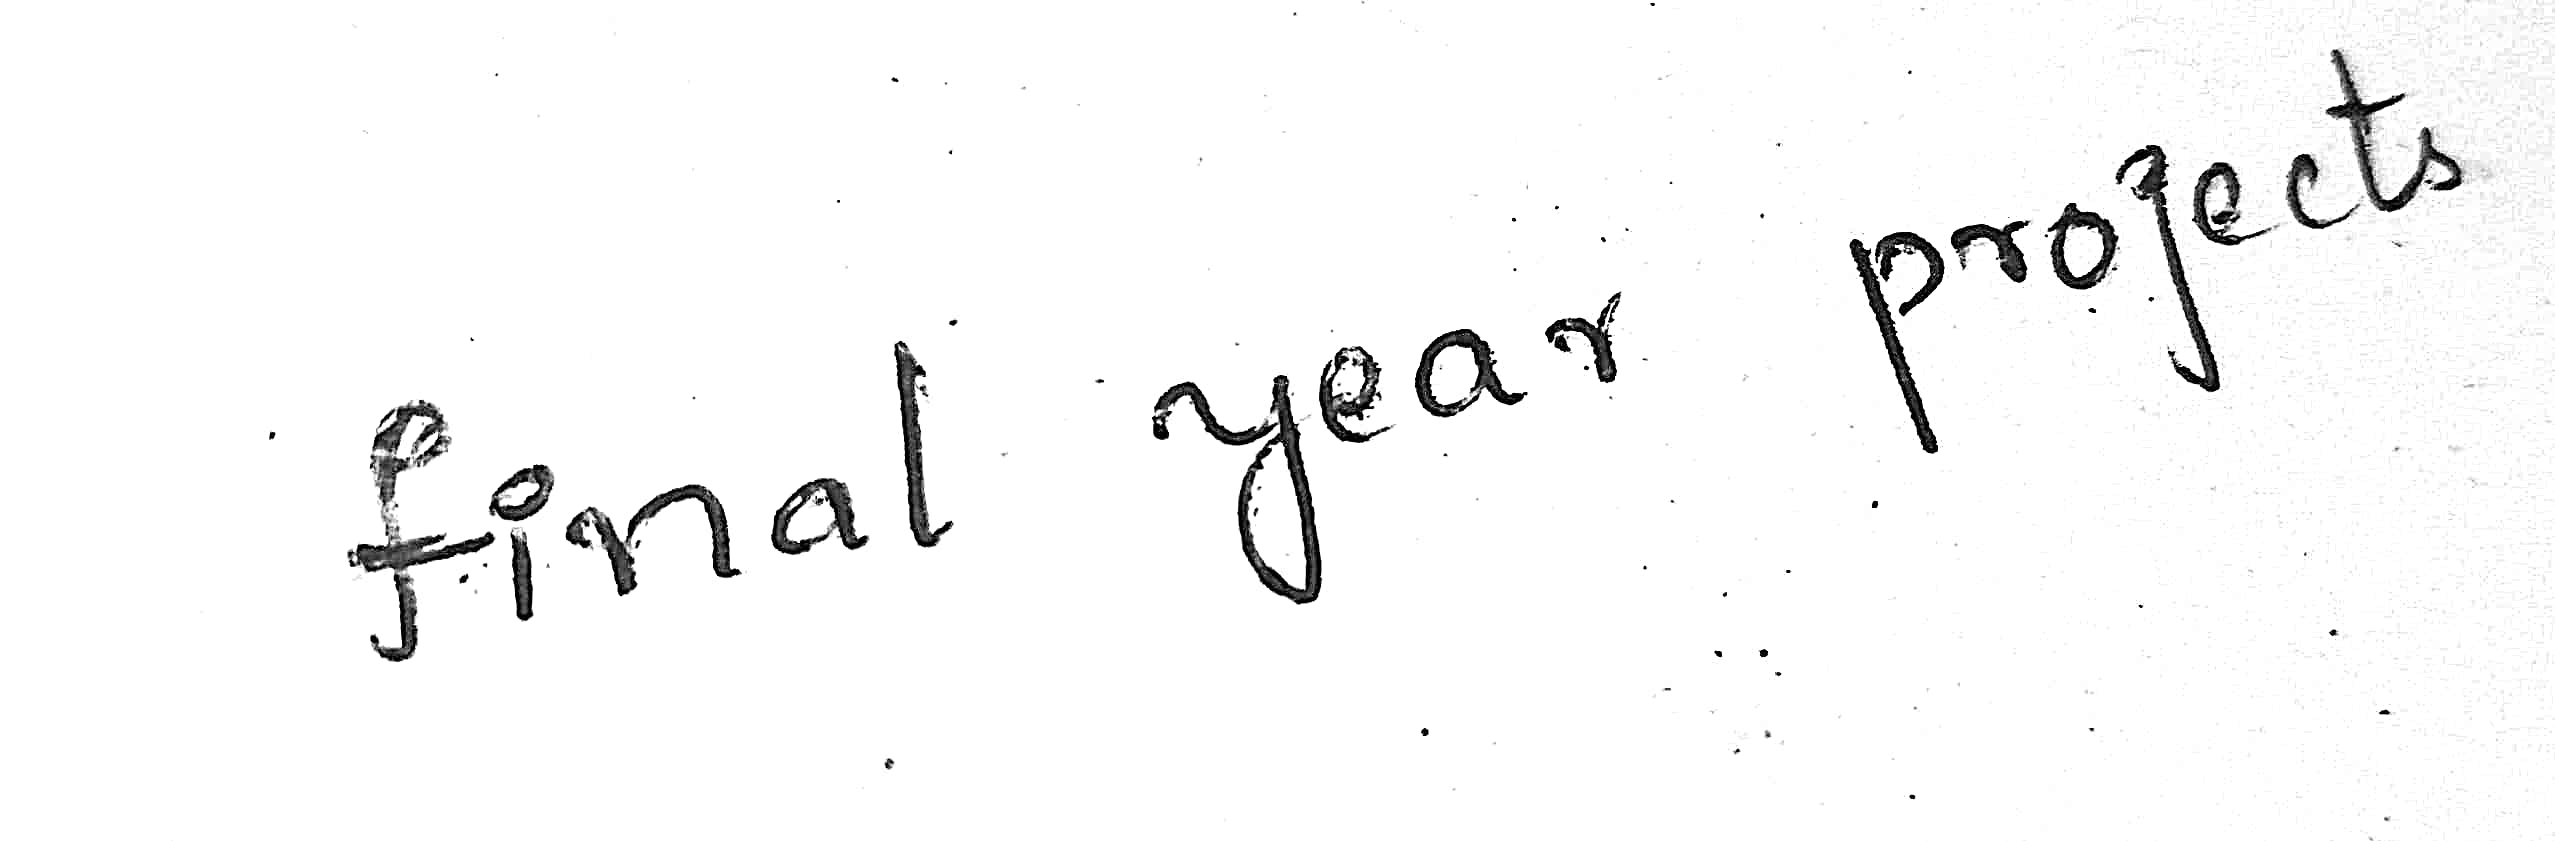 final year projects